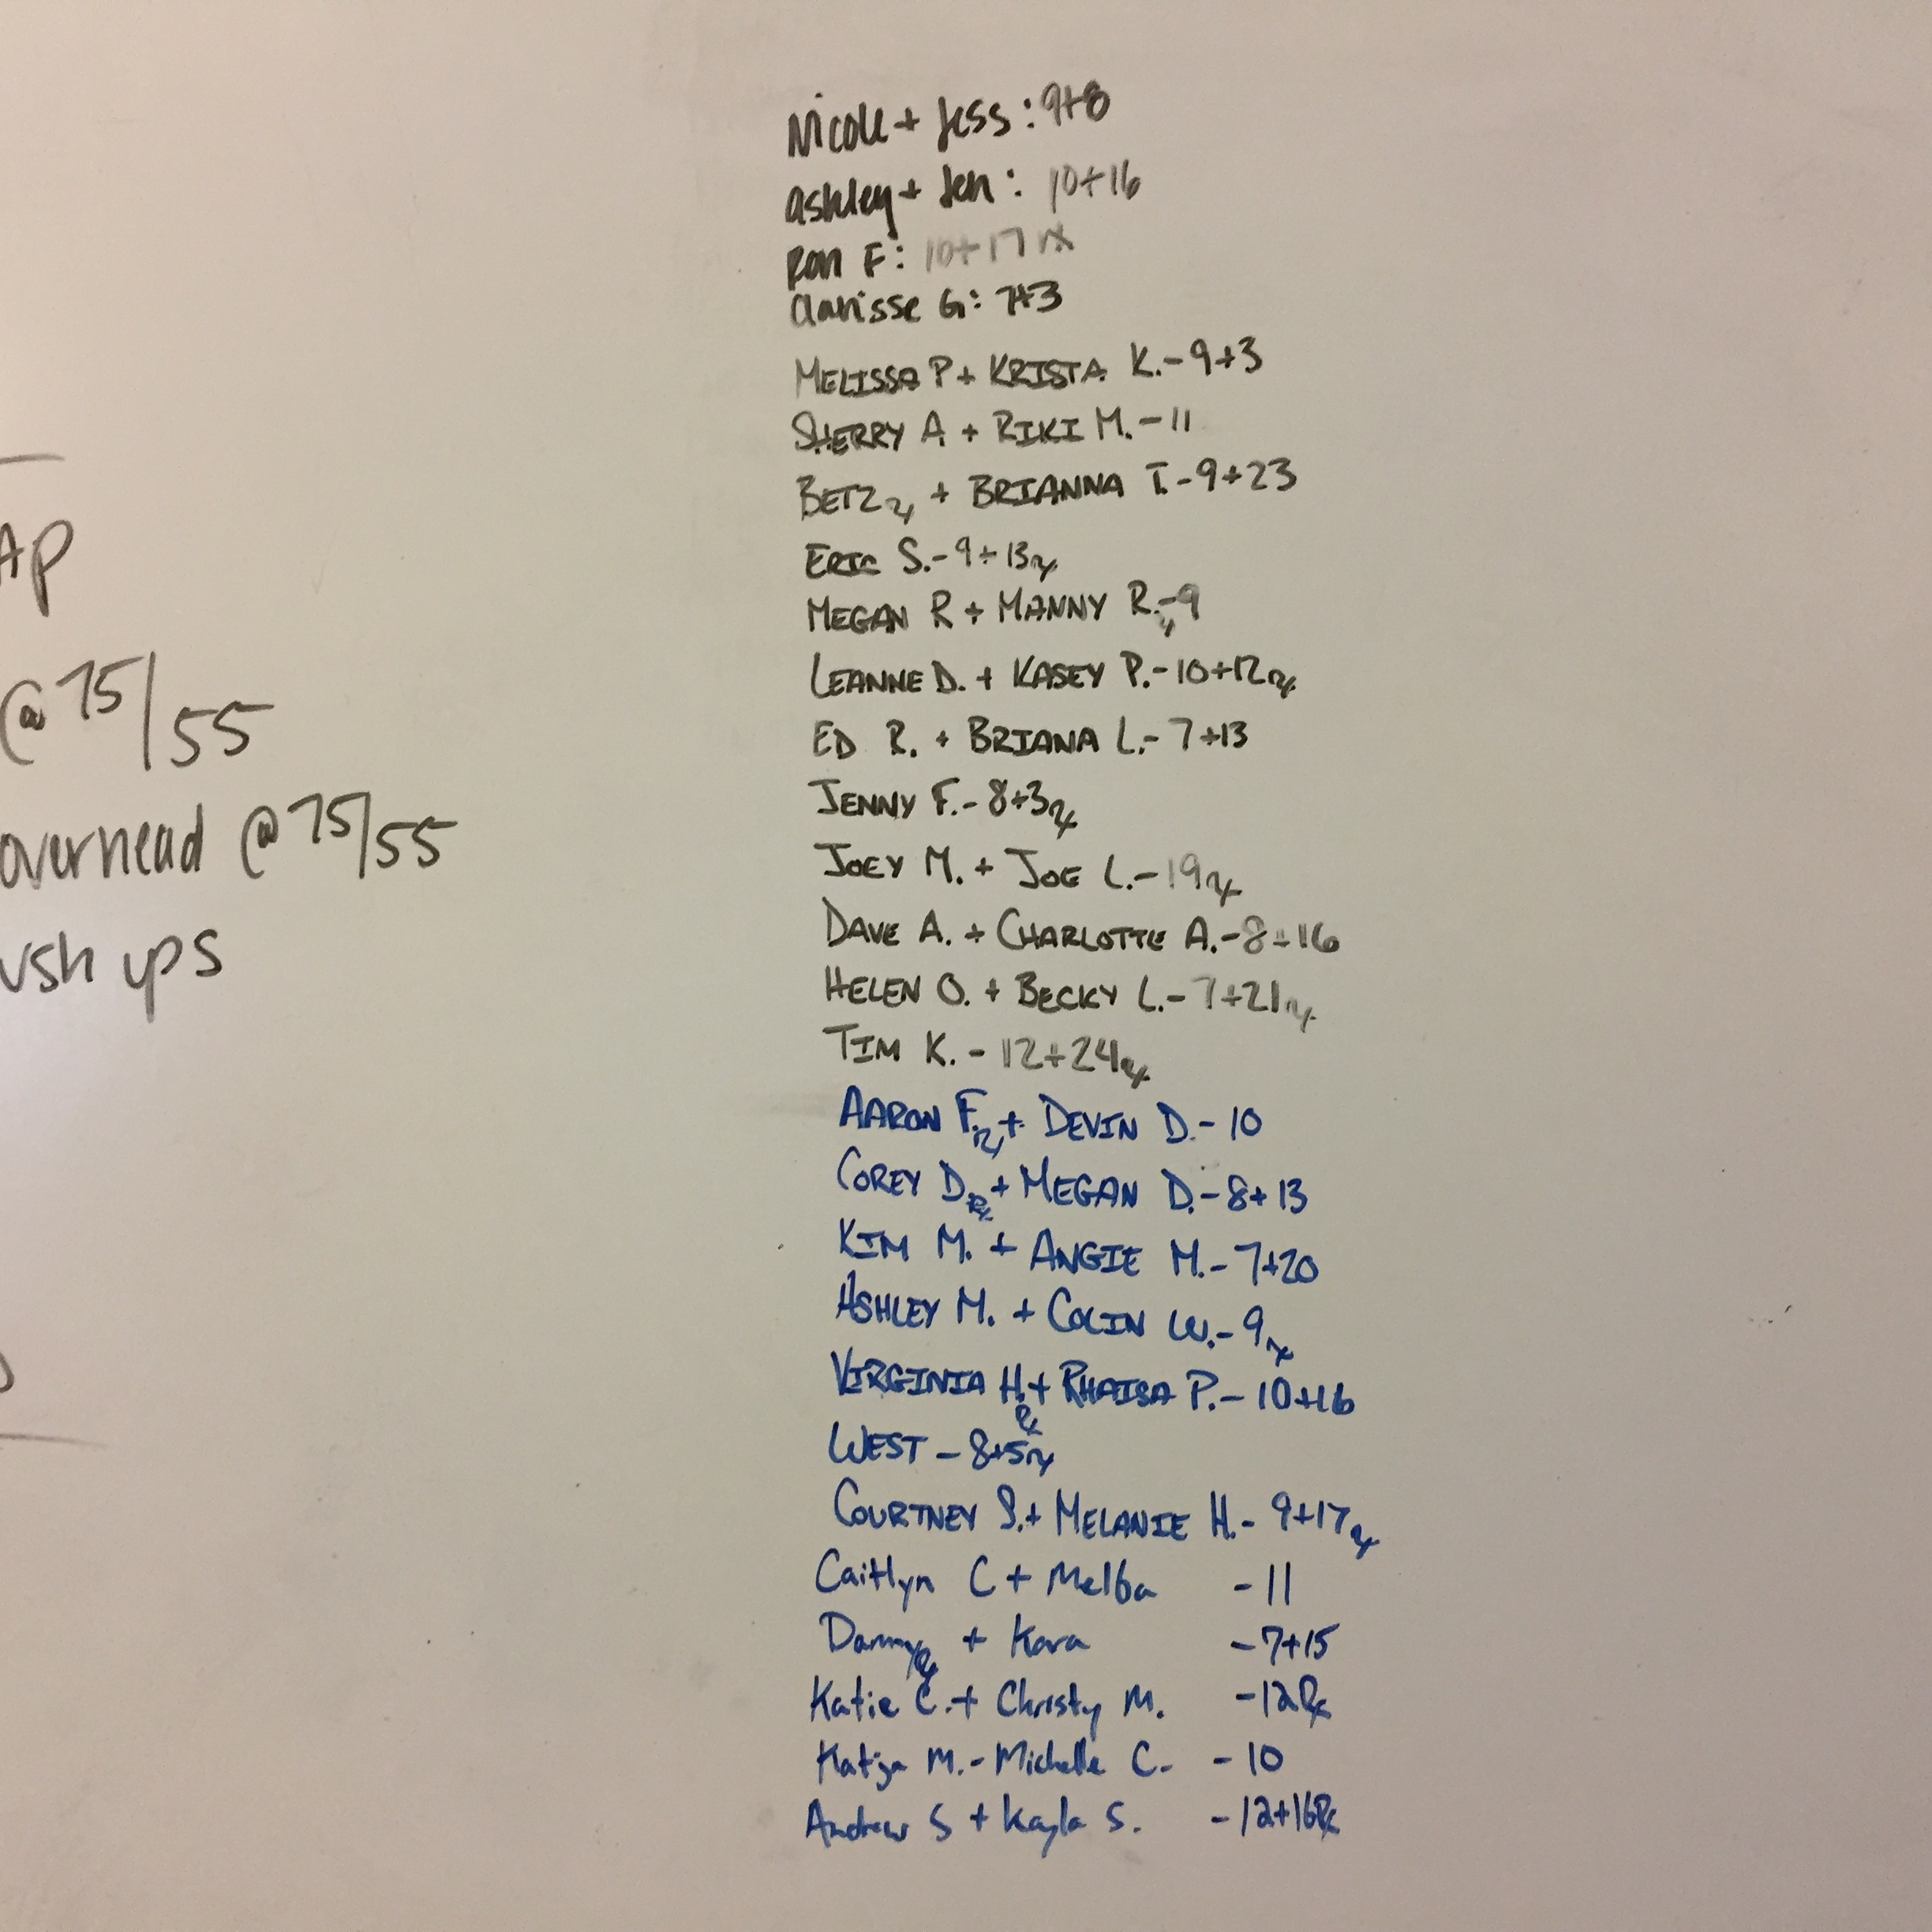 AP
@ 75/55
overhead @ 75/55
ush ups
Nicole + Jess: 9+8
Ashley + Jen: 10+16
Ron F: 10+17 rx
Clarisse G: 7+3
MELISSA P + KRISTA K. - 9+3
SHERRY A + RIKI M. - 11
BETZ rx + BRIANNA T. - 9+23
ERIC S. - 9+13 rx
MEGAN R + MANNY R. - 9
LEANNE D. + KASEY P. - 10+12 rx
ED R. + BRIANA L. - 7+13
JENNY F. - 8+3 rx
JOEY M. + JOE L. - 19 rx
DAVE A. + CHARLOTTE A. - 8+16
HELEN O. + BECKY L. - 7+21 rx
TIM K. - 12+24 rx
AARON F. rx + DEVIN D. - 10
COREY D. Rx + MEGAN D. - 8+13
KIM M. + ANGIE M. - 7+20
ASHLEY M. + COLIN W. - 9 rx
VIRGINIA H. Rx + RHAISA P. - 10+16
WEST - 8+5 rx
COURTNEY S. + MELANIE H. - 9+17 rx
Caitlyn C + Melba - 11
Danny Rx + Kara - 7+15
Katie C. + Christy M. - 12 Rx
Katja M. - Michelle C. - 10
Andrew S + Kayla S. - 12+16 Rx